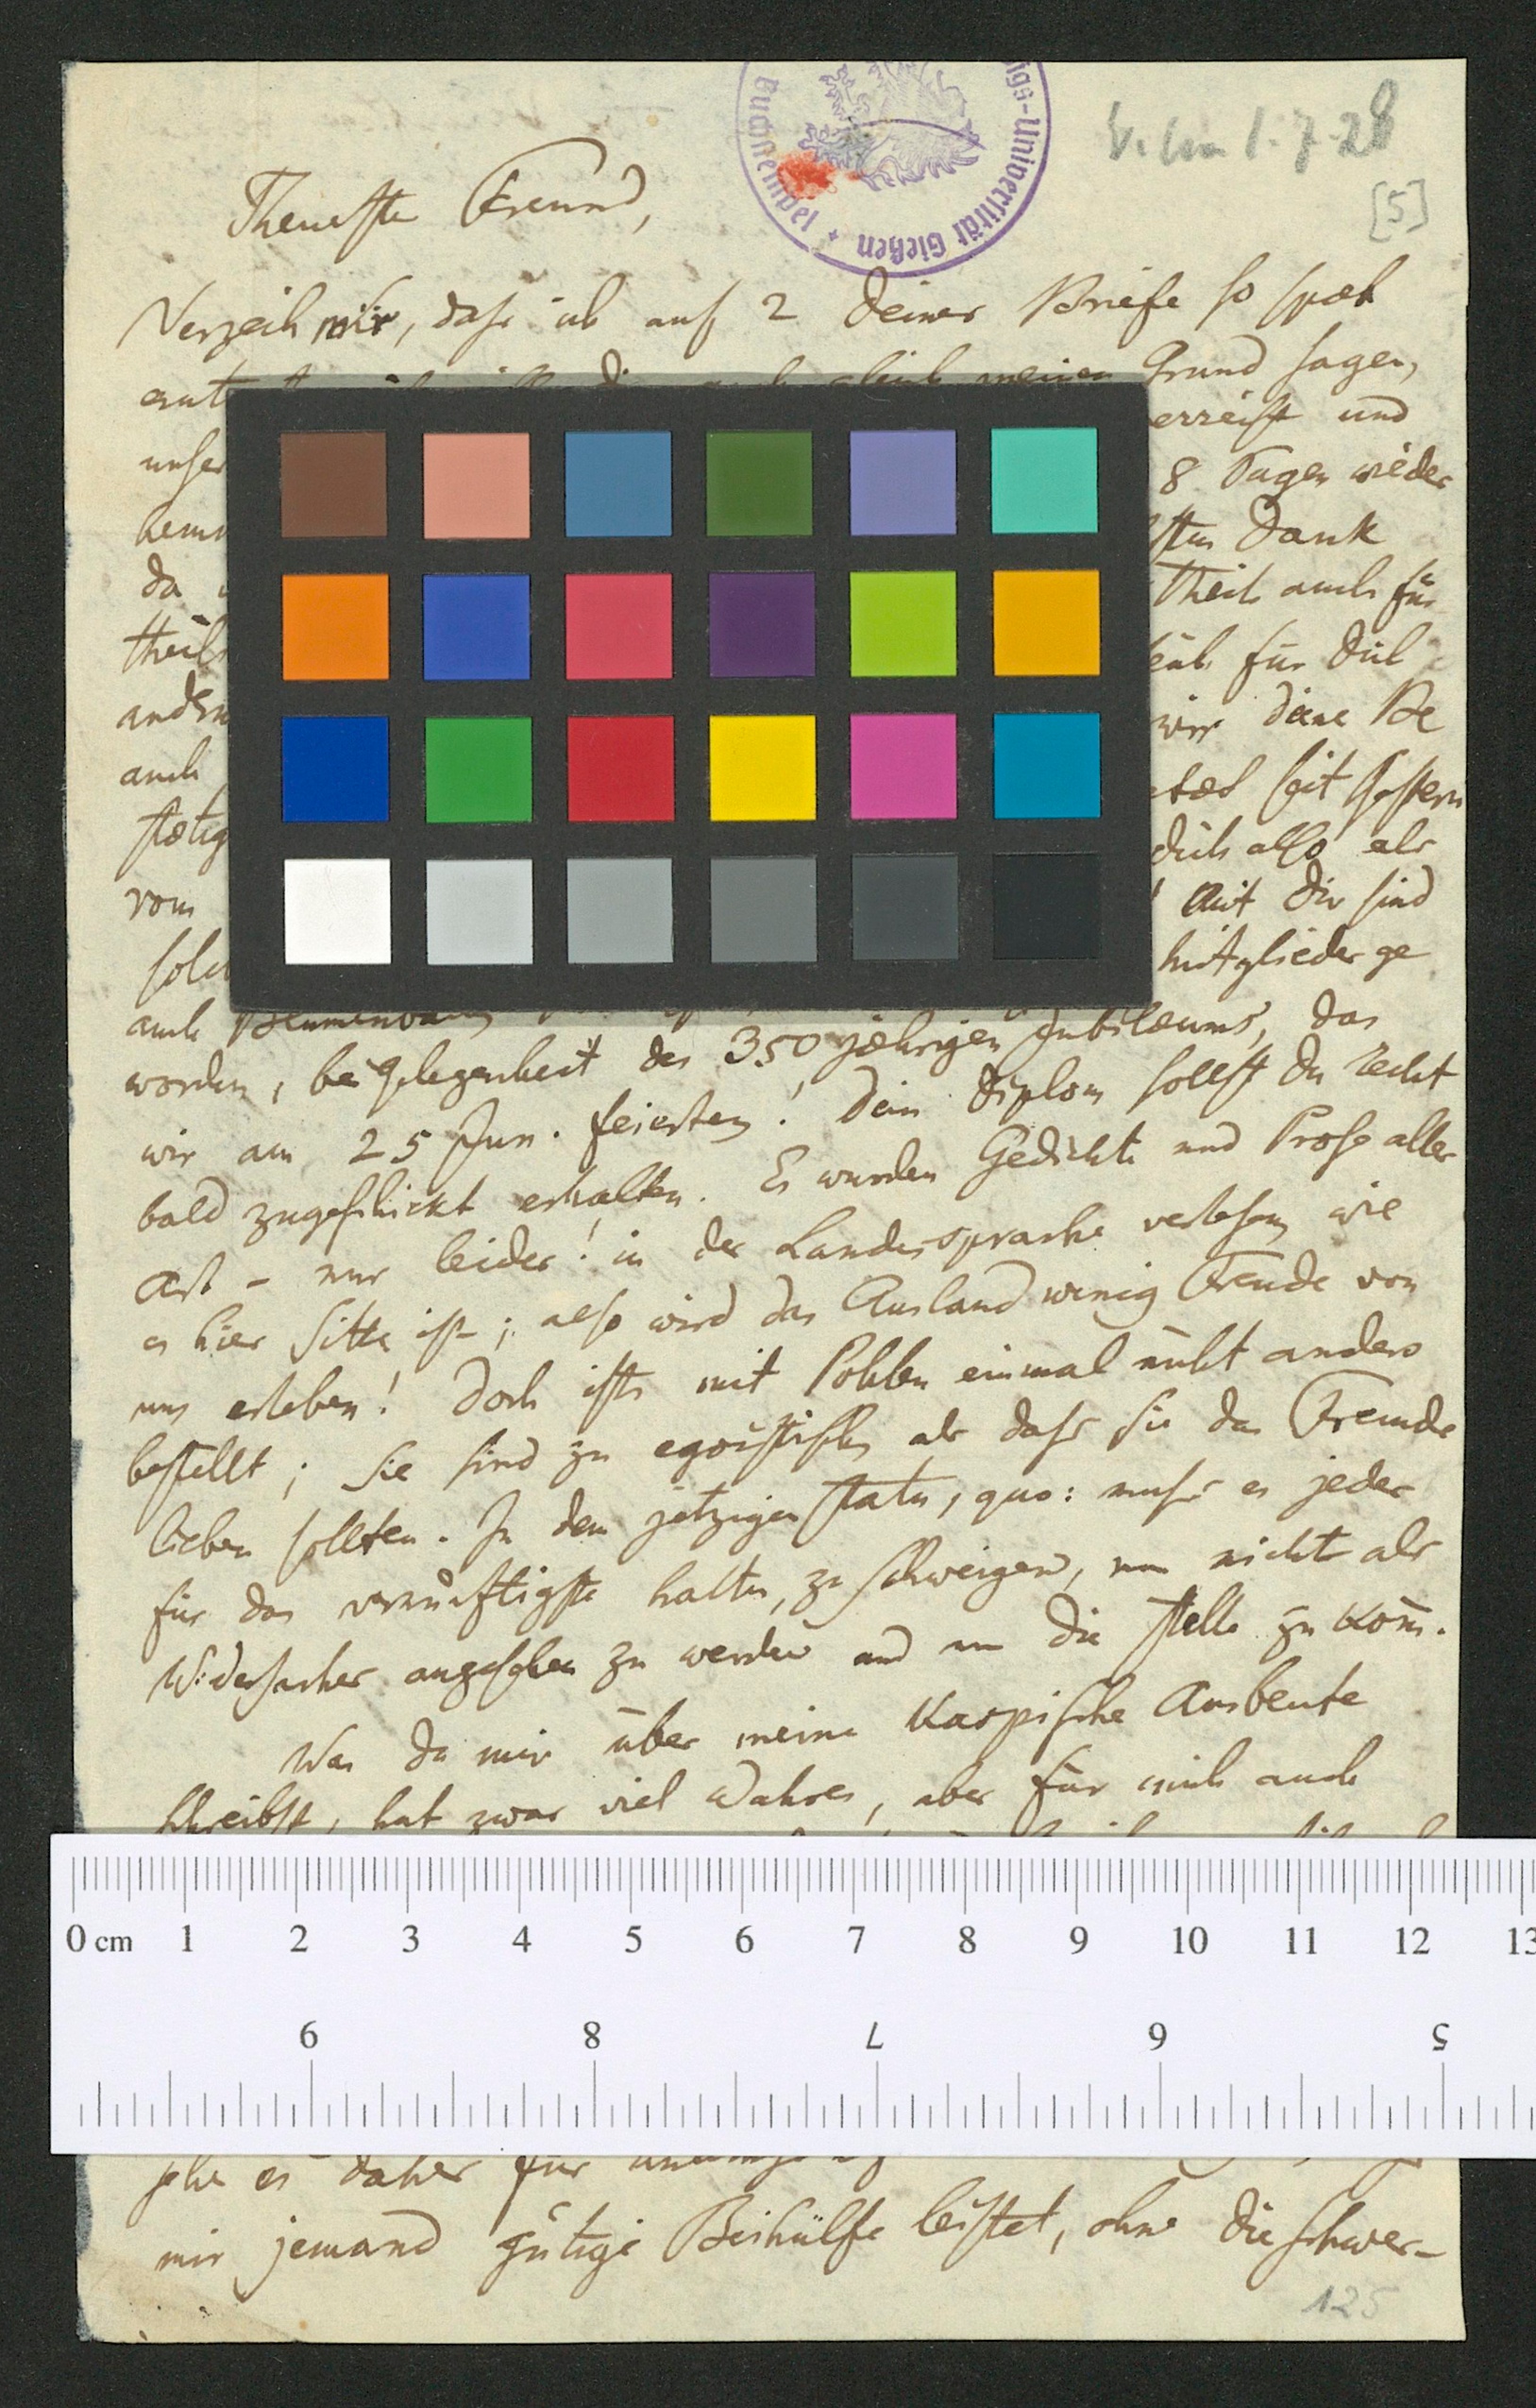 V. Wn 1.7.28
[5]
Buchstempel + igs-Universität Gießen
Theuerster Freund,
Verzeih mir, dass ich auf 2 deiner Briefe so spæt
ant meinen Grund sagen,
unser erreist und
8 Tagen wieder
sten Dank
da theils auch für
theils für dich
andern wir deine Be
auch tæt seit gestern
stætig dich also als
vom Mit dir sind
solch mitglieder ge
auch Blumenbach
worden, bei Gelegenheit des 350 jæhrigen Jubilæums, das
wir am 25 Jun. feierten! Dein Diplom sollst du recht
bald zugeschickt erhalten. Es wurden Gedichte und Prose aller
Art – nur leider! in der Landessprache verlesen wie
es hier Sitte ist; also wird das Ausland wenig Freude von
uns erleben! Doch ists mit Pohlen einmal nicht anders
bestellt; sie sind zu egoistisch, als dass sie das Fremde
lieben sollten. In dem jetzigen statu, quo: muss es jeder
für das vernünftigste halten, zu schweigen, um nicht als
Widersacher angesehen zu werden und um die Stelle zu kom̄.
Was du mir über meine Kaspische Ausbeute
schreibst, hat zwar viel Wahres, aber für mich auch
0 cm 1 2 3 4 5 6 7 8 9 10 11 12 13
9 8 7 6 5
sehe es daher für
mir jemand gütige Beihülfe leistet, ohne die schwer-
125